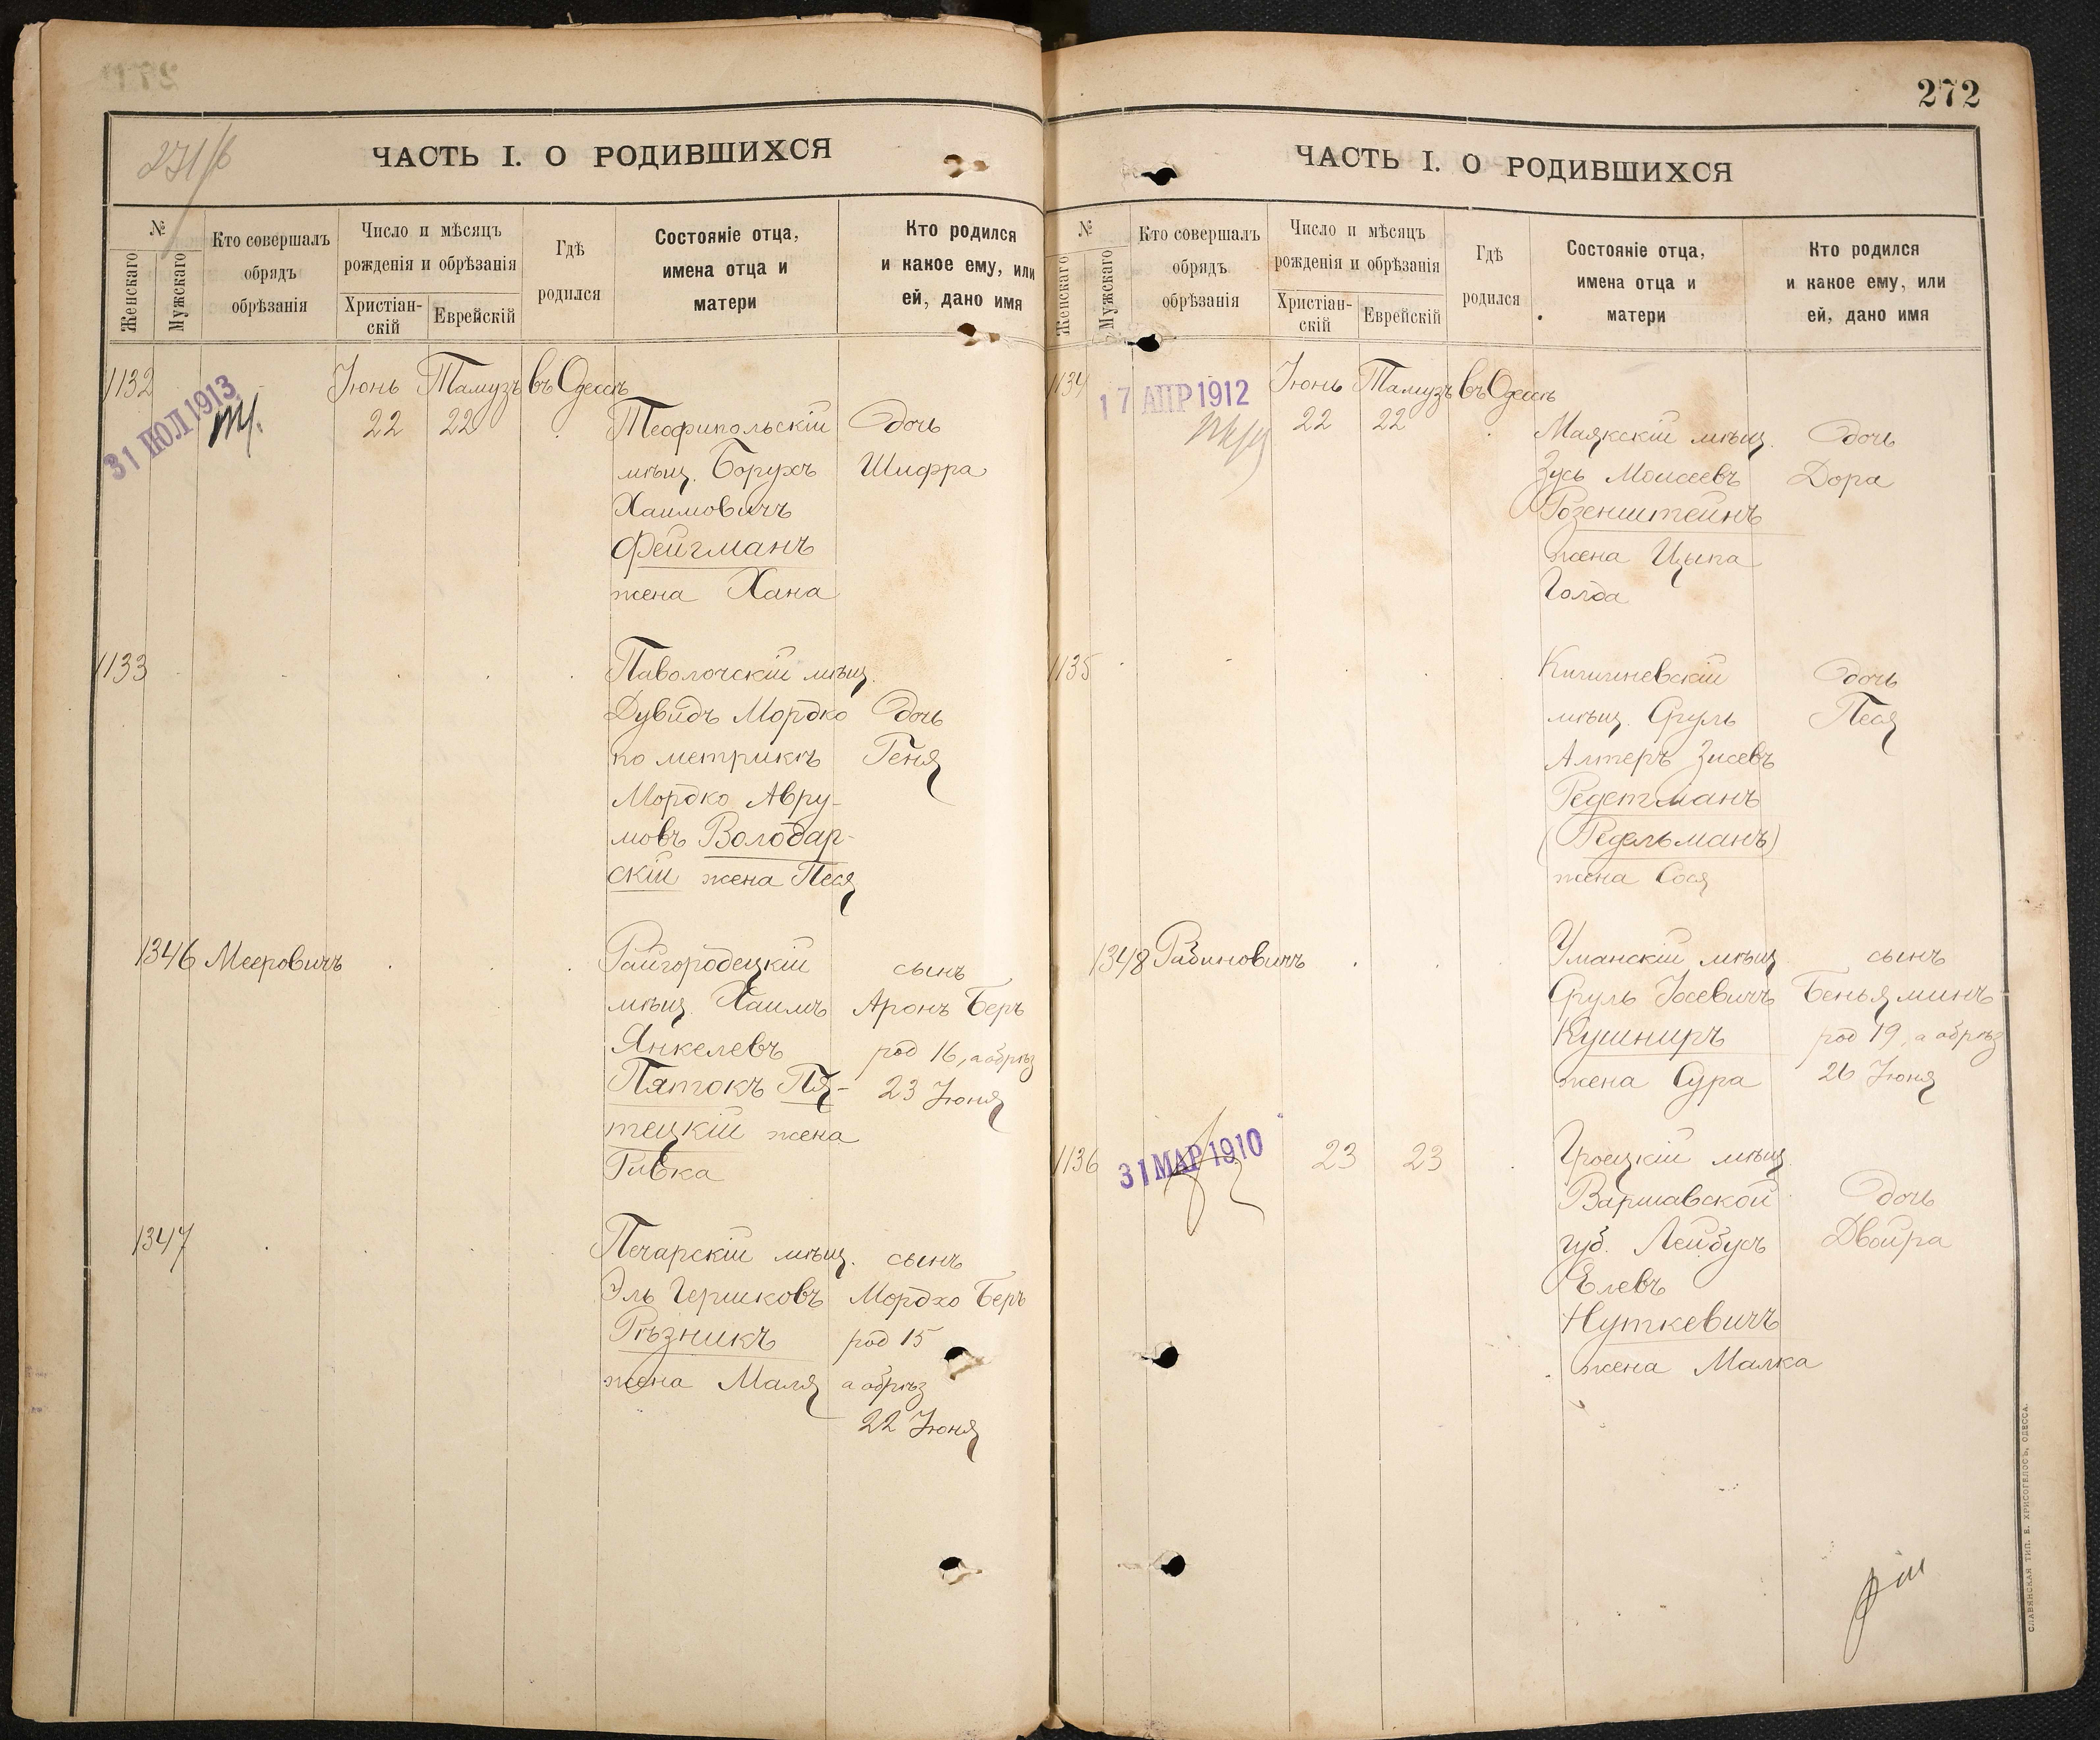 271/б
ЧАСТЬ I. О РОДИВШИХСЯ
№
Женскаго
Мужскаго
Кто совершалъ
обрядъ
обрѣзанія
Число и мѣсяцъ
рожденія и обрѣзанія
Христіан-
скій
Еврейскій
Гдѣ
родился
Состояніе отца,
имена отца и
матери
Кто родился
и какое ему, или
ей, дано имя
1132
31 ИЮЛ 1913
Іюнь Тамузъ въ Одессѣ
22 22
Теофипольскій
мѣщ. Борухъ
Хаимовичъ
Фейгманъ
жена Хана
дочь
Шифра
1133
Паволочскій мѣщ.
Дувидъ Мордко
по метрикѣ
Мордко Авру-
мовъ Володар-
скій жена Песя
дочь
Геня
1346 Мееровичъ
Райгородецкій
мѣщ. Хаимъ
Янкелевъ
Пятокъ Пя-
тецкій жена
Ривка
сынъ
Аронъ Беръ
род 16, а обрѣз
23 Іюня
1347
Печарскій мѣщ.
Эль Гершковъ
Рѣзникъ
жена Маля
сынъ
Мордхо Беръ
род 15
а обрѣз
22 Іюня
272
ЧАСТЬ I. О РОДИВШИХСЯ
№
Женскаго
Мужскаго
Кто совершалъ
обрядъ
обрѣзанія
Число и мѣсяцъ
рожденія и обрѣзанія
Христіан-
скій
Еврейскій
Гдѣ
родился
Состояніе отца,
имена отца и
матери
Кто родился
и какое ему, или
ей, дано имя
1134
17 АПР 1912
Іюнь Тамузъ въ Одессѣ
22 22
Маякскій мѣщ.
Зусь Моисеевъ
Розенштейнъ
жена Цыпа
Голда
дочь
Дора
1135
Кишиневскій
мѣщ. Сруль
Алтеръ Зисевъ
Редетманъ
(Редельманъ)
жена Сося
дочь
Песя
1348 Рабиновичъ
Уманскій мѣщ
Сруль Іосевичъ
Кушниръ
жена Сура
сынъ
Беньяминъ
род 19, а обрѣз
26 Іюня
1136
31 МАР 1910
23 23
Гроецкій мѣщ.
Варшавской
губ. Лейбусъ
Елевъ
Нуткевичъ
жена Малка
дочь
Двойра
СЛАВЯНСКАЯ ТИП. Е. ХРИСОГЕЛОСЪ, ОДЕССА.